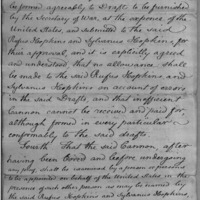 be formed agreeably to Drafts to be furnished
by the Secretary of War, at the expence of the
United States, and submitted to the said
Rufus Hopkins and Sylvanus Hopkins for
their approval, and it is explicitly agreed
and understood that no allowance shall
be made to the said Rufus Hopkins and
Sylvanus Hopkins on account of errors
in the said Drafts and that inefficient
Cannon cannot be received and paid for,
although formed in every particular
conformably to the said drafts.
Fourth That the said Cannon after
having been bored and before undergoing
any proof shall be examined by a person
to be appointed on behalf of the United States, in the
presence of such other person as may be named by
the said Rufus Hopkins and Sylvanus Hopkins,